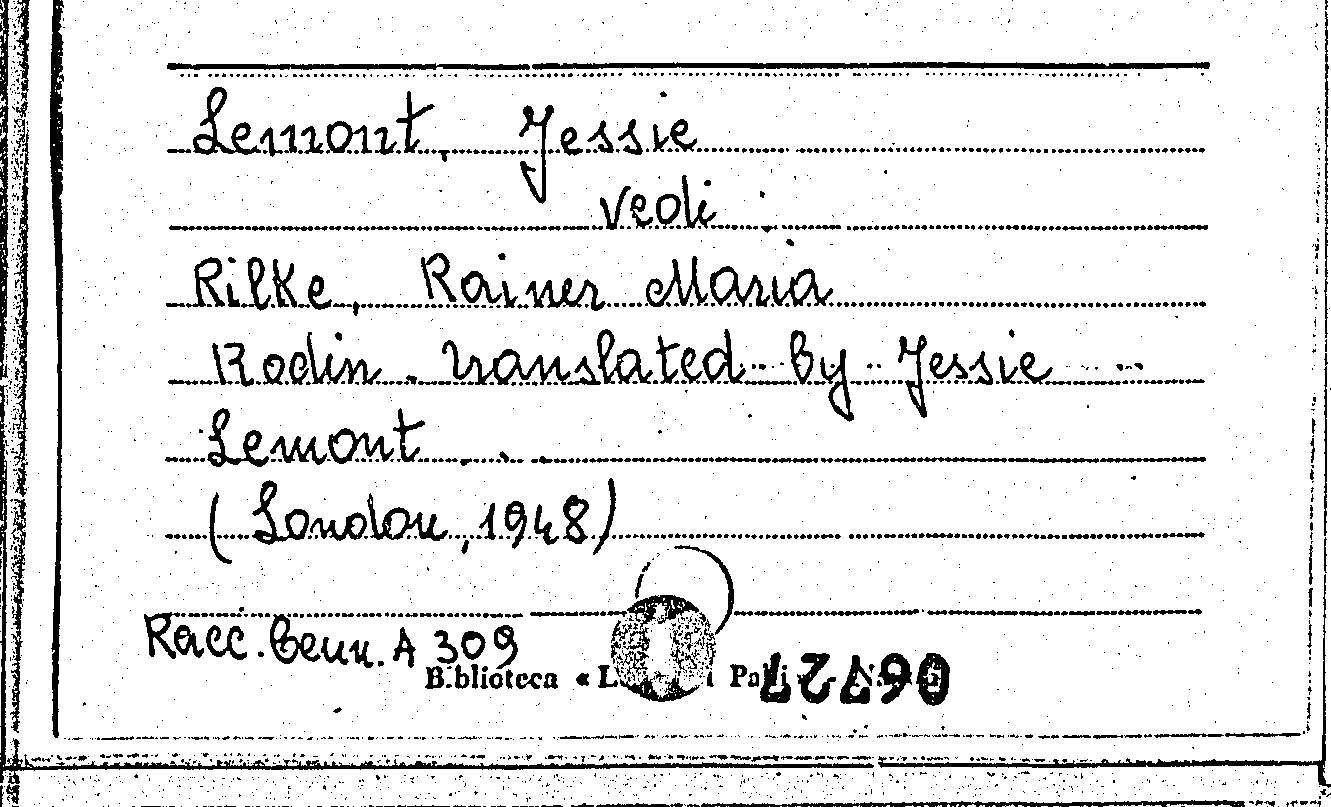 Lemont, Jessie
vedi
Rilke, Rainer Maria
Rodin. translated by Jessie
Lemont...
(London, 1948)
Racc. Genn. A 309
B.blioteca «